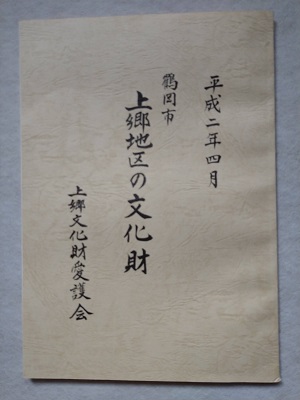 平成二年四月
鶴岡市
上郷地区の文化財
上郷文化財愛護会